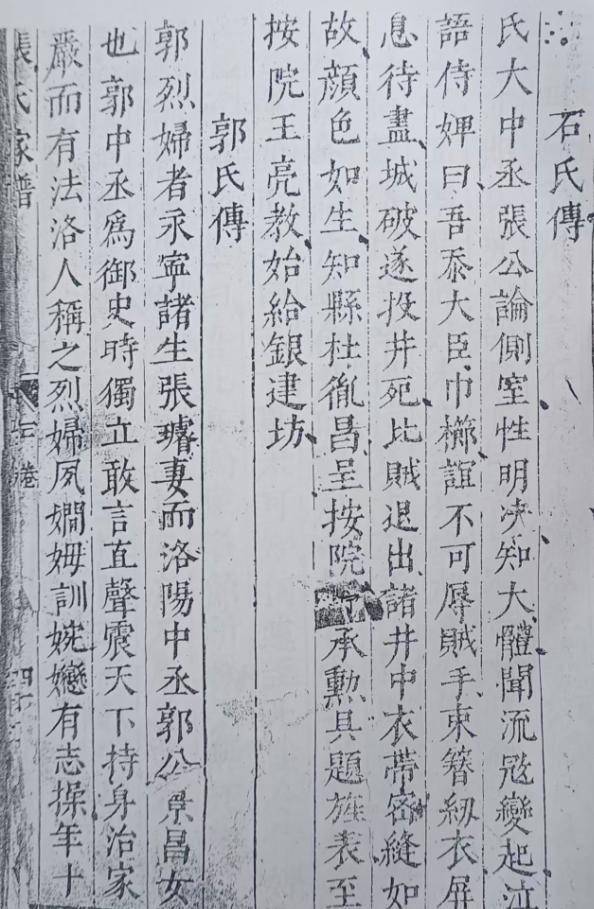 石氏傳
氏大中丞張公論側室性明决知大體聞流冦變起泣
語侍婢曰吾忝大臣巾櫛誼不可辱賊手束簪紉衣屏
息待盡城破遂投井死比賊退出諸井中衣帶密縫如
故顔色如生知縣杜胤昌呈按院承勳具題旌表至
按院王亮教始給銀建坊
郭氏傳
郭烈婦者永寧諸生張璿妻而洛陽中丞郭公景昌女
也郭中丞爲御史時獨立敢言直聲震天下持身治家
嚴而有法洛人稱之烈婦夙嫺姆訓婉嫕有志操年十
張氏家譜
卷